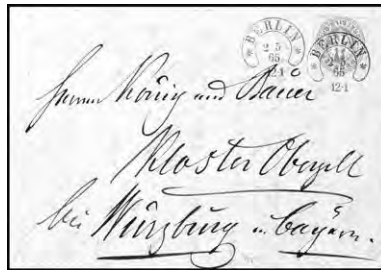 BERLIN
2 5
65
12-1
BERLIN
65
12-1
Herrn König und Bauer
Kloster Oberzell
bei Würzburg in Bayern.